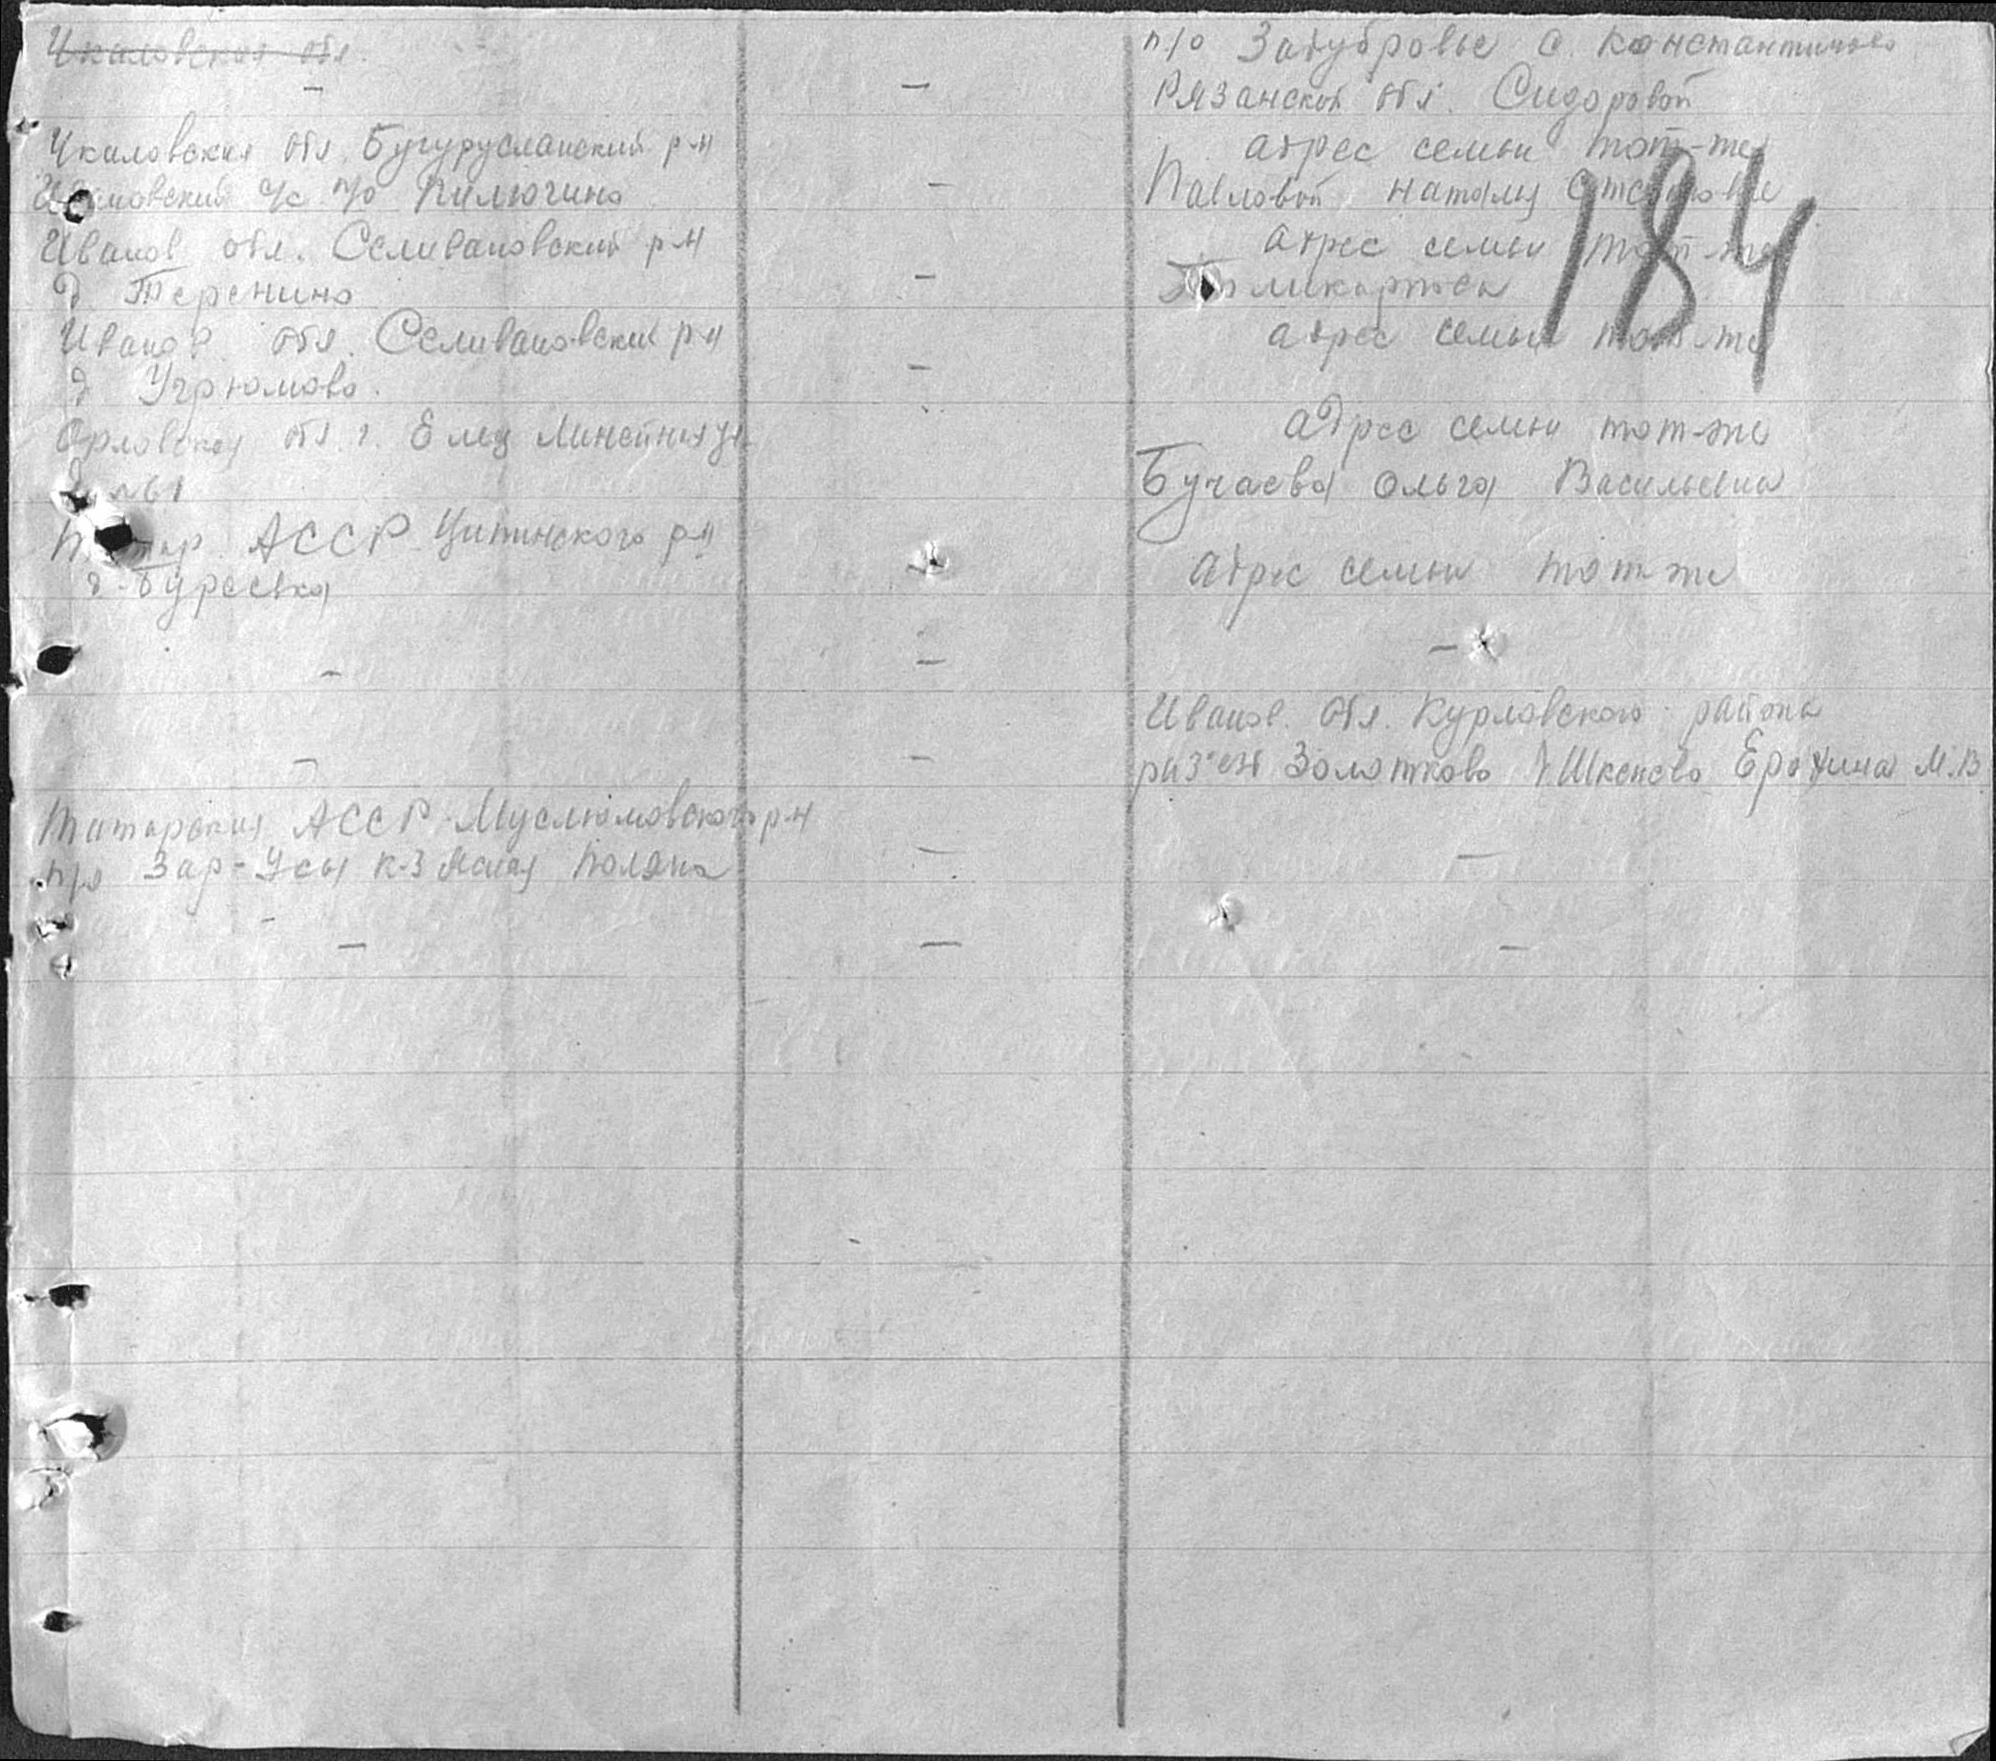 Чкаловская обл.
-
Чкаловская обл. Бугурусланский р-н
с/с п/о Пилюгино
Иванов обл. Селивановский р-н
д. Теренино
Иванов. обл. Селивановский р-н
д Угрюмово.
Орловская обл. г. Елец Линейная ул
№61
АССР Ципинского р-н
-
-
Татарская АССР Муслюмовского р-н
п/о Зар-Усы к-з Ясная Поляна
-
-
-
-
-
-
-
-
-
-
-
п/о Задубровье с. Константиново
Рязанской обл. Сидоровой
адрес семьи тот-же
Павловой Наталия
адрес семьи тот-же
Поликарпова
адрес семьи тот-же
184
адрес семьи тот-же
Бучаева Ольга Васильевна
адрес семьи тот же
-
Иванов. обл. Курловского района
раз'езд Золотково Ерохина М.В
-
-